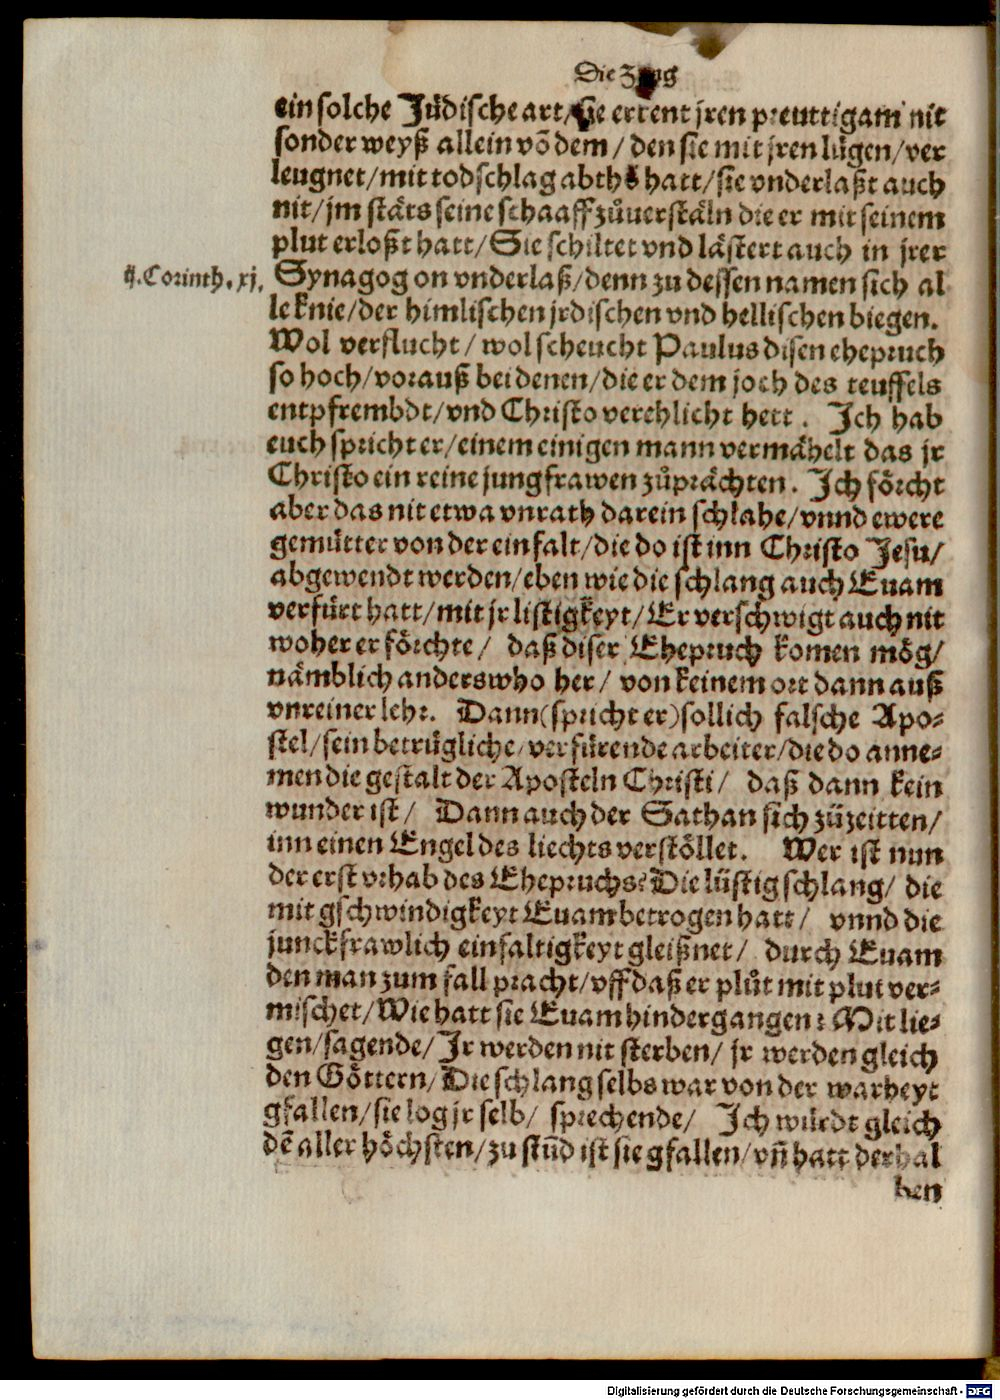 Die
ein solche Jüdische art/ Sie erkent jren preuttigam nit
sonder weyß allein võ dem / den sie mit jren lügen/ ver
leugnet/ mit todschlag abthů hatt/ sie vnderlaßt auch
nit/ jm stäts seine schaaff zůuerstäln die er mit seinem
plut erloßt hatt/ Sie schiltet vnd lästert auch in jrer
ij. Corinth. xj. Synagog on vnderlaß/ denn zu dessen namen sich al
le knie/ der himlischen jrdischen vnd hellischen biegen.
Wol verflucht / wol scheucht Paulus disen ehepruch
so hoch/ vorauß bei denen/ die er dem joch des teuffels
entpfrembdt/ vnd Christo verehlicht hett . Ich hab
euch spricht er/ einem einigen mann vermähelt das jr
Christo ein reine jungfrawen zůprächten. Ich förcht
aber das nit etwa vnrath darein schlahe/ vnnd ewere
gemütter von der einfalt/ die do ist inn Christo Jesu/
abgewendt werden/ eben wie die schlang auch Euam
verfürt hatt/ mit jr listigkeyt/ Er verschwigt auch nit
woher er förchte / daß diser Ehepruch komen mög/
nämblich anderswho her/ von keinem ort dann auß
vnreiner lehr. Dann (spricht er) sollich falsche Apo-
stel/ sein betrügliche/ verfürende arbeiter/ die do anne-
men die gestalt der Aposteln Christi/ daß dann kein
wunder ist/ Dann auch der Sathan sich züzeitten/
inn einen Engel des liechts verstöllet. Wer ist nun
der erst vrhab des Ehepruchs? Die lüstig schlang/ die
mit gschwindigkeyt Euam betrogen hatt/ vnnd die
junckfrawlich einfaltigkeyt gleißnet/ durch Euam
den man zum fall pracht/ vff daß er plůt mit plut ver-
mischet/ Wie hatt sie Euam hindergangen? Mit lie-
gen/ sagende/ Jr werden nit sterben/ jr werden gleich
den Göttern/ Die schlang selbs war von der warheyt
gfallen/ sie log jr selb/ sprechende/ Ich würdt gleich
dẽ aller höchsten/ zu stũd ist sie gfallen/ vñ hatt derhal
ben
Digitalisierung gefördert durch die Deutsche Forschungsgemeinschaft - DFG